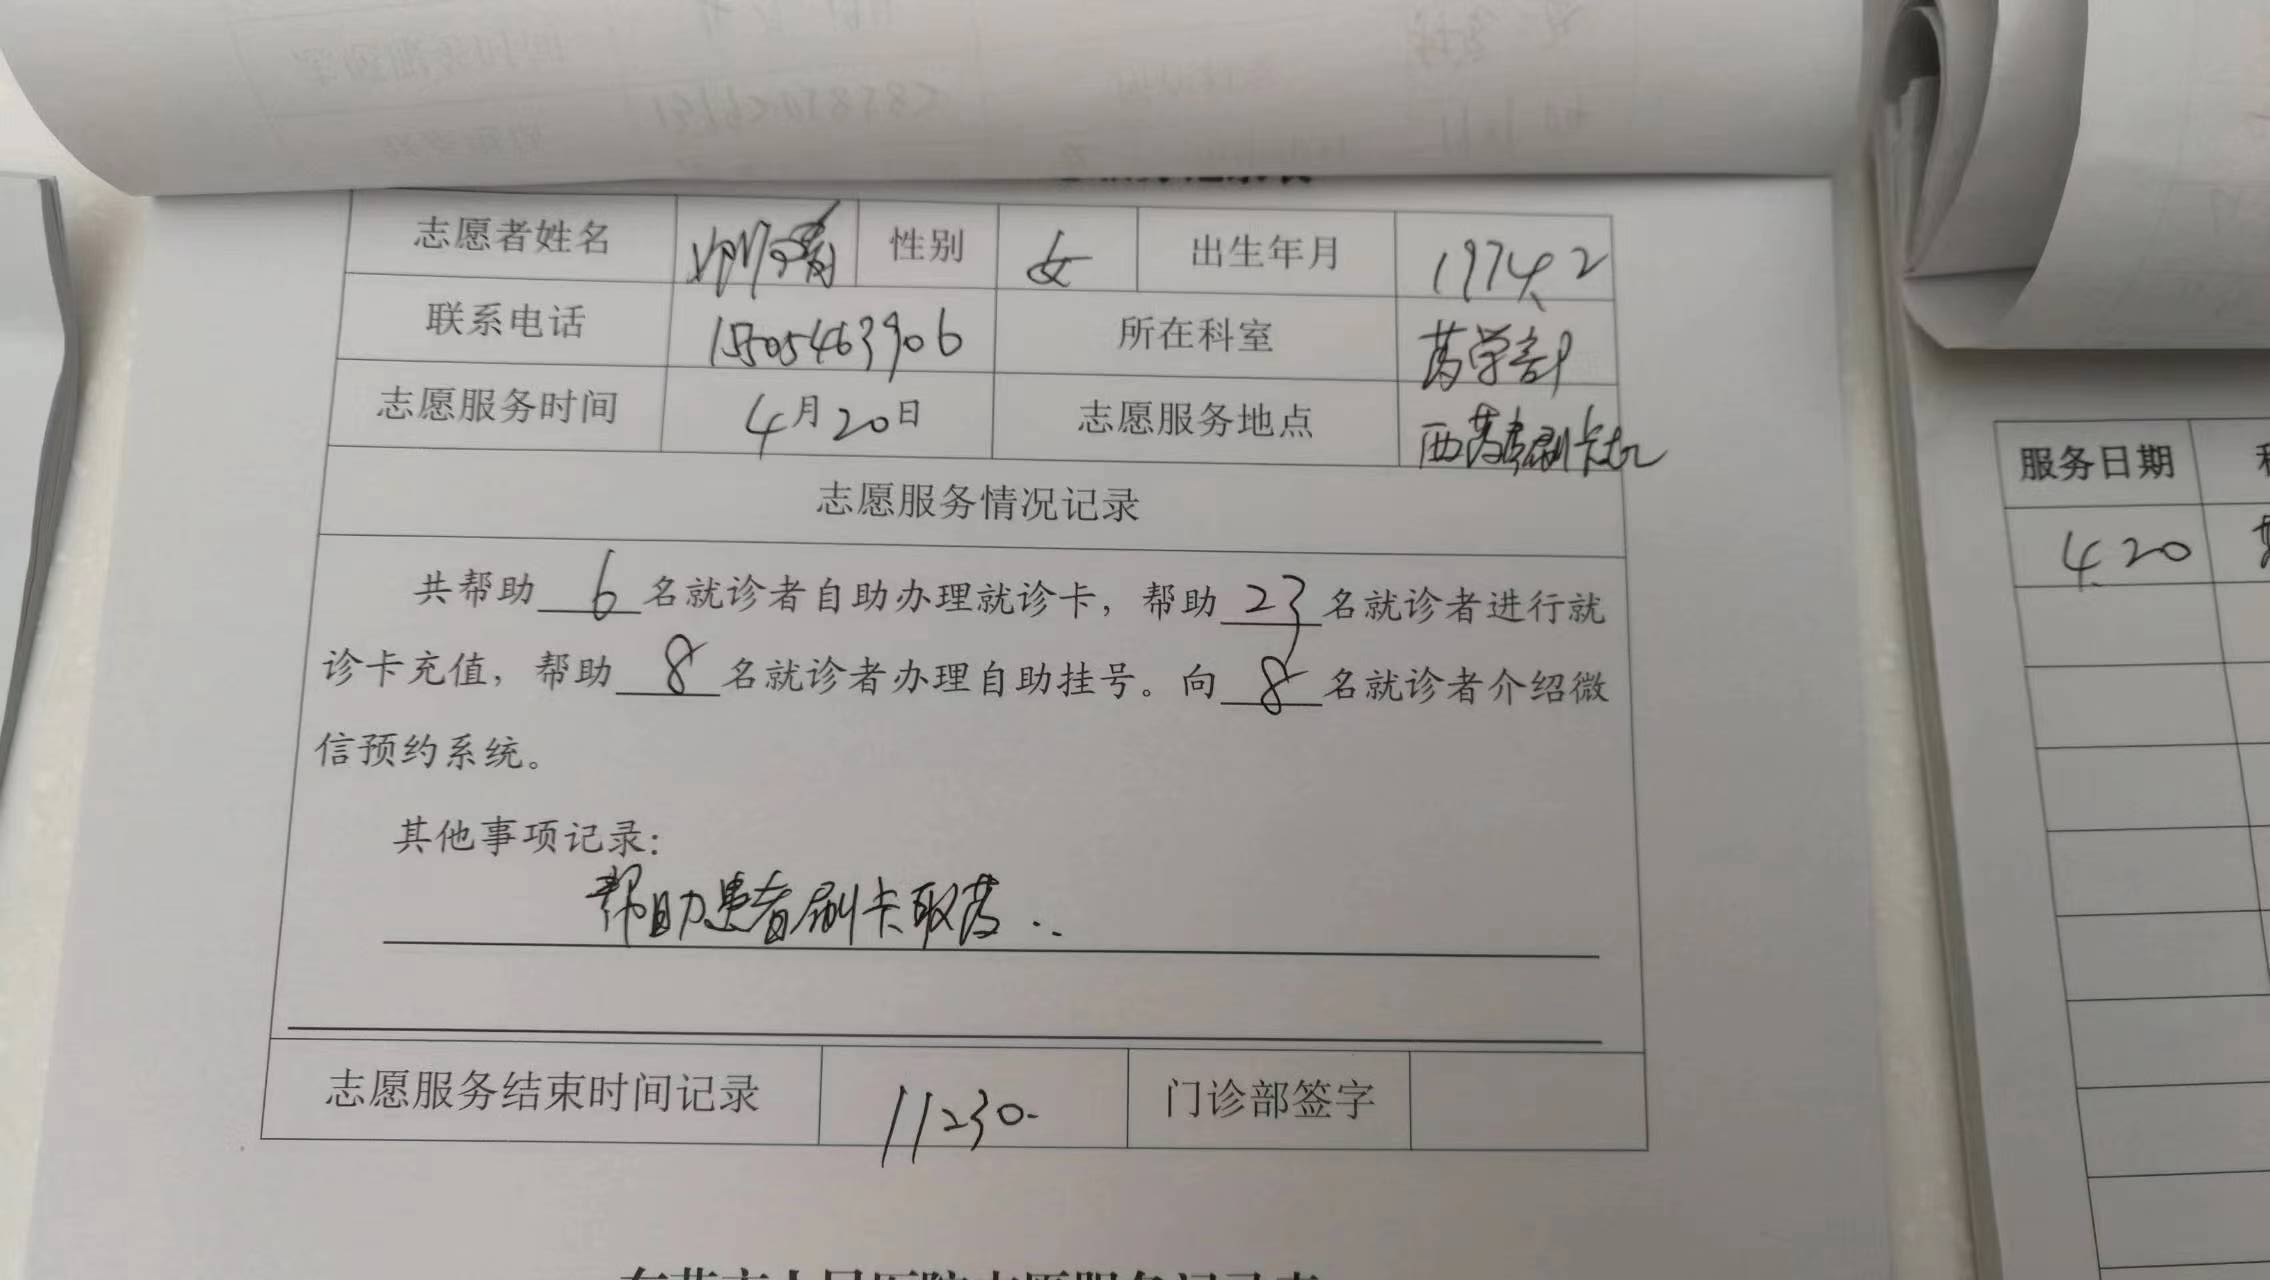 志愿者姓名 性别 女 出生年月 1974.2
联系电话 15505463906 所在科室 药学部
志愿服务时间 4月20日 志愿服务地点 西药房刷卡机
志愿服务情况记录
共帮助 6 名就诊者自助办理就诊卡，帮助 23 名就诊者进行就
诊卡充值，帮助 8 名就诊者办理自助挂号。向 8 名就诊者介绍微
信预约系统。
其他事项记录：
帮助患者刷卡取药..
志愿服务结束时间记录 11230. 门诊部签字
服务日期
4.20